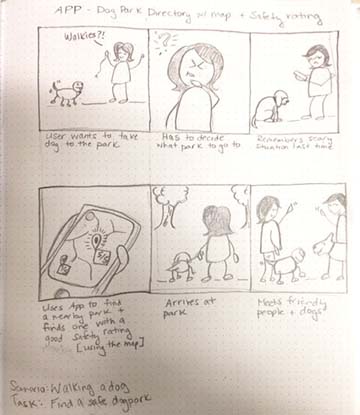 APP - Dog Park Directory w/ map + Safety rating
Walkies?!
?
?
!
User wants to take
dog to the park
Has to decide
what park to go to
Remembers scary
situation last time
Uses App to find
a nearby park +
finds one with a
good safety rating
[using the map]
Arrives at
park
Meets friendly
people + dogs
Scenario: Walking a dog
Task: Find a safe dogpark